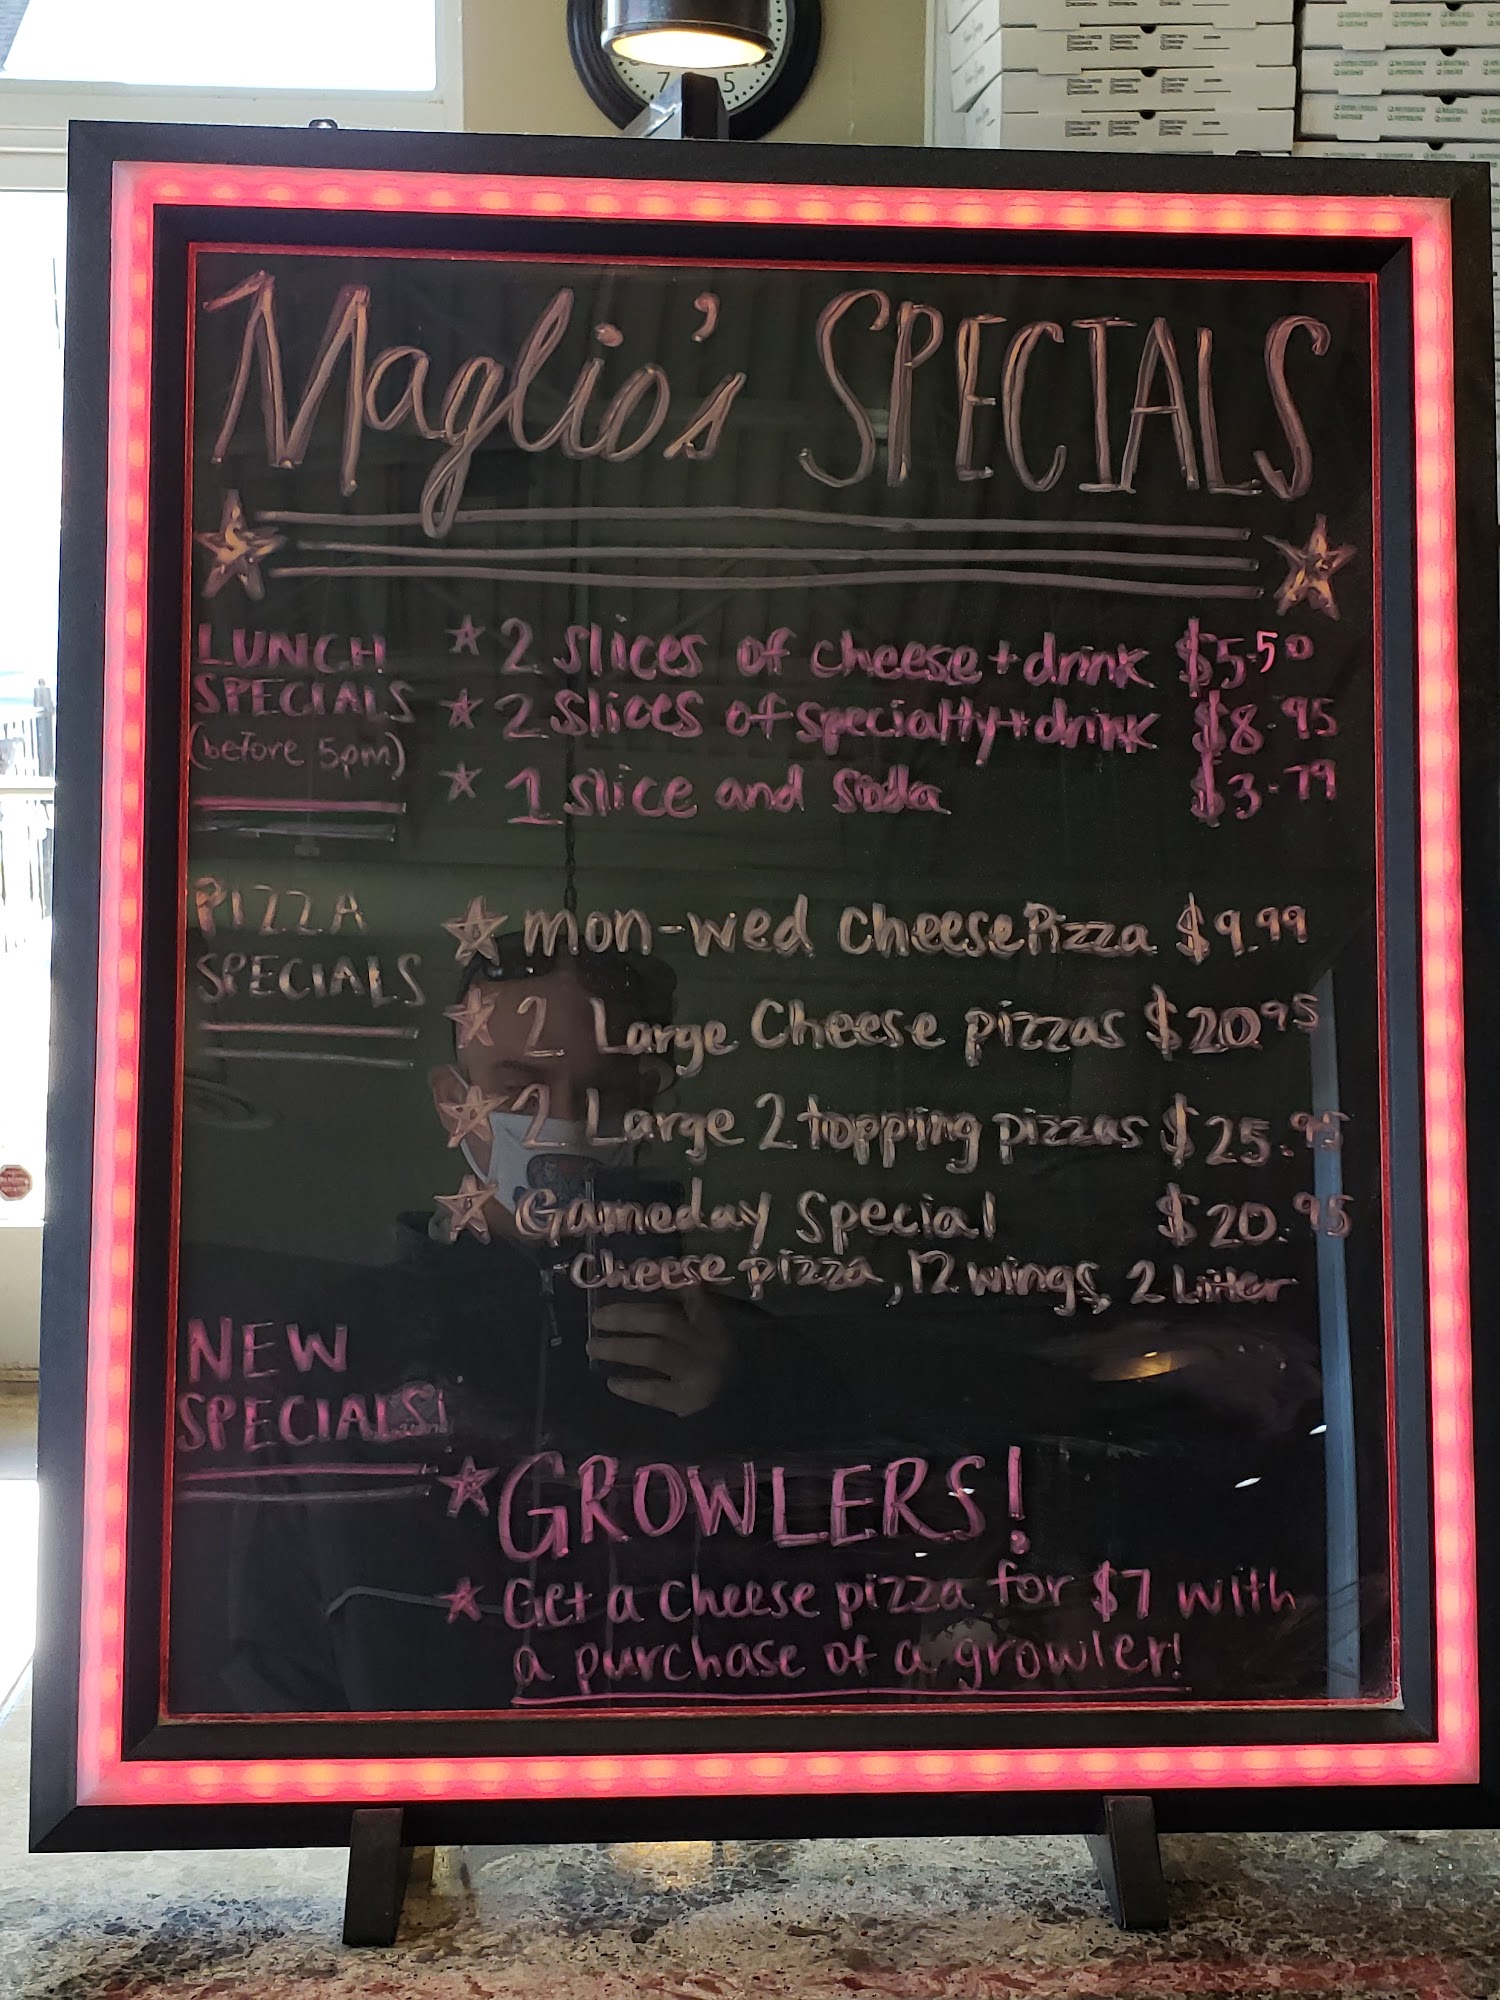 7 5
Maglio's SPECIALS
LUNCH
SPECIALS
(before 5pm)
2 slices of cheese + drink $5.50
2 slices of specialty + drink $8.95
1 slice and soda $3.79
PIZZA
SPECIALS
mon-wed cheese Pizza $9.99
2 Large Cheese pizzas $20.95
2 Large 2 topping pizzas $25.95
Gameday Special $20.95
-Cheese pizza, 12 wings, 2 Litter
NEW
SPECIALS!
GROWLERS!
Get a cheese pizza for $7 with
a purchase of a growler!